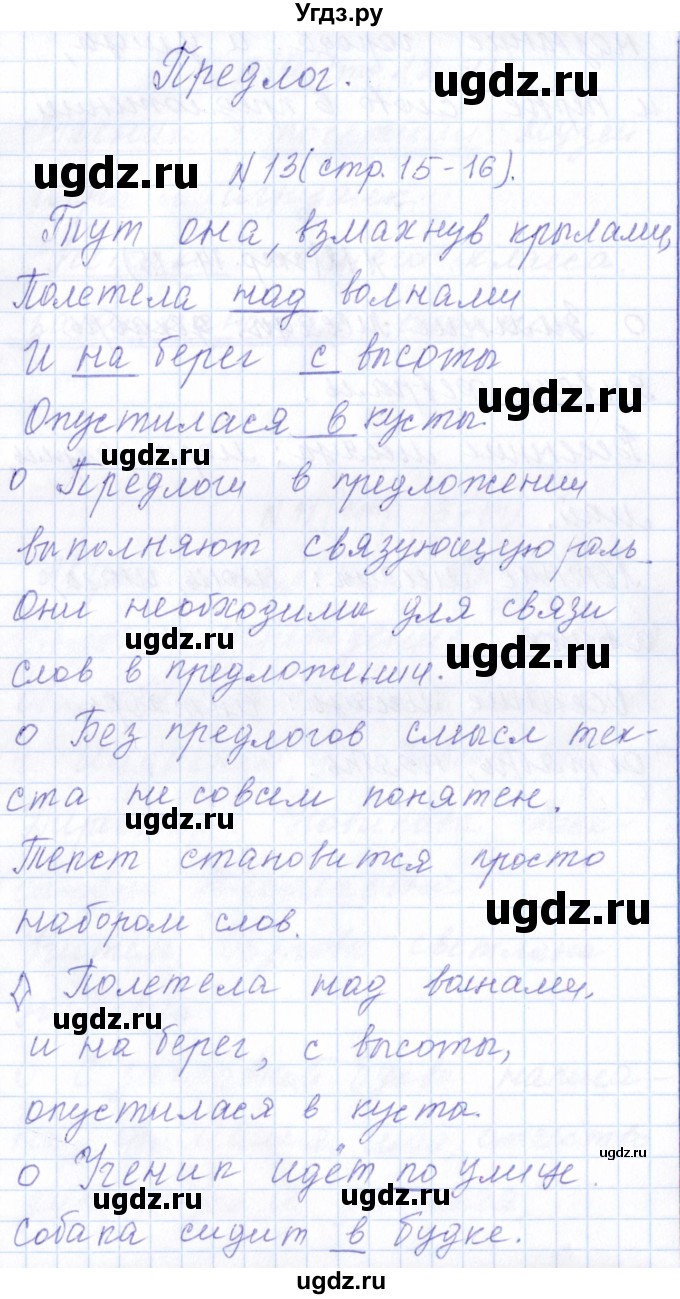 Угдз.ру
Предлог.
ugdz.ru
ugdz.ru
N 13 (стр. 15-16).
Тут она, взмахнув крылами,
Полетела над волнами
И на берег с высоты
ugdz.ru
Опустилася в кусты.
ugdz.ru
о Предлоги в предложении
выполняют связующую роль.
Они необходимы для связи
ugdz.ru
ugdz.ru
слов в предложении.
о Без предлогов смысл тек-
ста не совсем понятен.
ugdz.ru
Текст становится просто
ugdz.ru
набором слов.
Полетела над волнами,
ugdz.ru
и на берег, с высоты,
опустилася в куста.
ugdz.ru
о Ученик идёт по улице.
ugdz.ru
ugdz.ru
Собака сидит в будке.
ugdz.ru